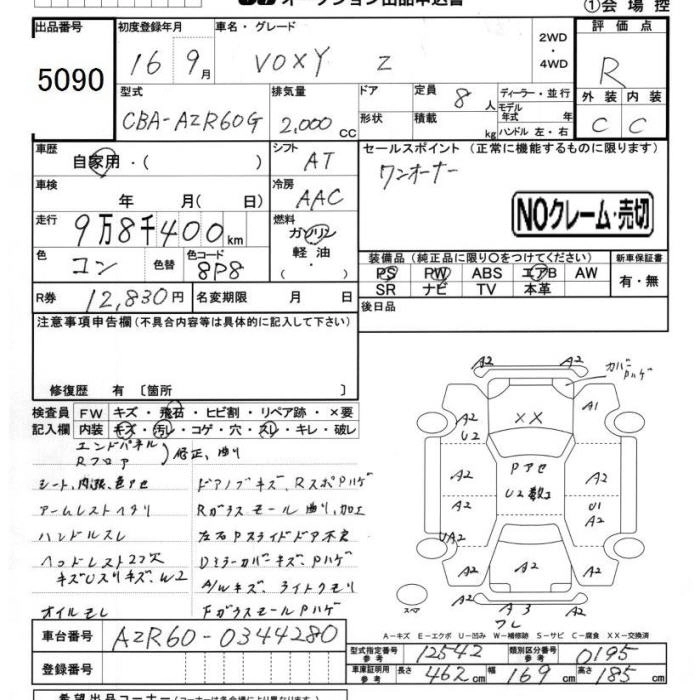 オークション出品申込書
①会場控
出品番号
5090
初度登録年月
16 9月
車名・グレード
VOXY Z
2WD
・
4WD
評価点
R
型式
CBA-AZR60G
排気量
2,000 CC
ドア
形状
定員 8 人
積載 kg
ディーラー・並行
モデル年式 年
ハンドル 左・右
外装 内装
C C
車歴
自家用・( )
シフト
AT
セールスポイント (正常に機能するものに限ります)
ワンオーナー
NOクレーム・売切
車検
年 月( 日)
冷房
AAC
走行
9万8千400km
燃料
ガソリン
軽油
・
色
コン
色替
色コード
8P8
装備品 (純正品に限り○をつけてください)
新車保証書
PS PW ABS エアB AW
SR ナビ TV 本革
有・無
R券
12,830円
名変期限 月 日
後日品
注意事項申告欄(不具合内容等は具体的に記入して下さい)
修復歴 有〔箇所 〕
検査員記入欄
FW キズ・飛石・ヒビ割・リペア跡・×要
内装 キズ・汚レ・コゲ・穴・スレ・キレ・破レ
エンドパネル
Rフロア
修正、曲り
シート、内張、色アセ
アームレストヘタリ
ハンドルスレ
ヘッドレスト
オイルモレ
ドアノブキズ、RスポPハゲ
Rガラスモール曲り、加工
左右Pスライドドア不良
DミラーカバーキズPハゲ
A/Wキズ、ライトクモリ
FガラスモールPハゲ
A2
A2
カバー
Pハゲ
A2
U2
XX
A1
A2
Pアセ
U2数コ
A2
U1
A2
UA2
A2
A2
A2
A2
A2
A2
A3
ワレ
スペア
A-キズ E-エクボ U-凹み W-補修跡 S-サビ C-腐食 XX-交換済
車台番号
AZR60-0344280
登録番号
型式指定番号
参考
12542
類別区分番号
参考
0195
車庫証明用
参考
長さ 462cm
幅 169cm
高さ 185cm
希望出品コーナー